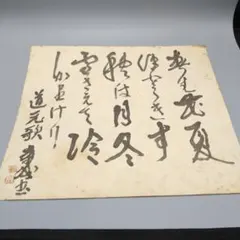 春は花夏
ほとゝきす
秋は月冬
雪きえて冷
しかりけり
道元歌